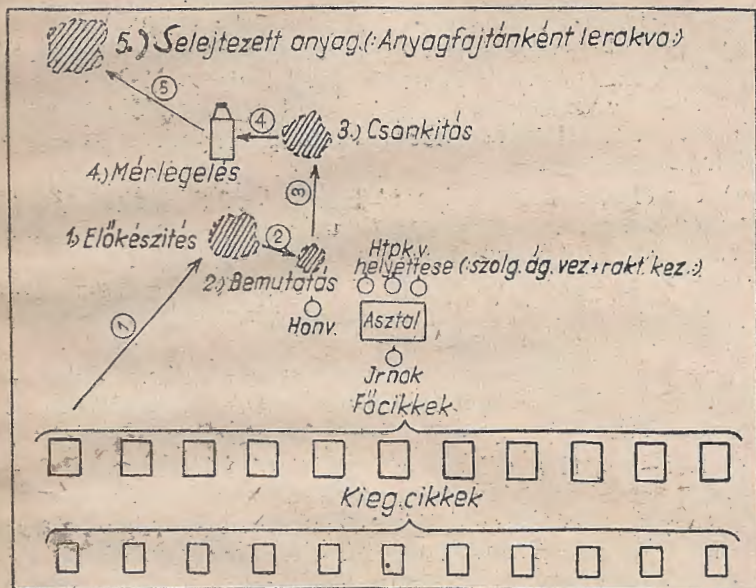 5.) Selejtezett anyag (:Anyagfajtánként lerakva:)
5
4
3.) Csonkitás
4.) Mérlegelés
3
1.) Előkészítés
2
2.) Bemutatás
Htpk. v.
helyettese (:szolg. ág. vez + rakt. kez.:)
Honv.
Asztal
1
Jrnok
Főcikkek
Kieg. cikkek